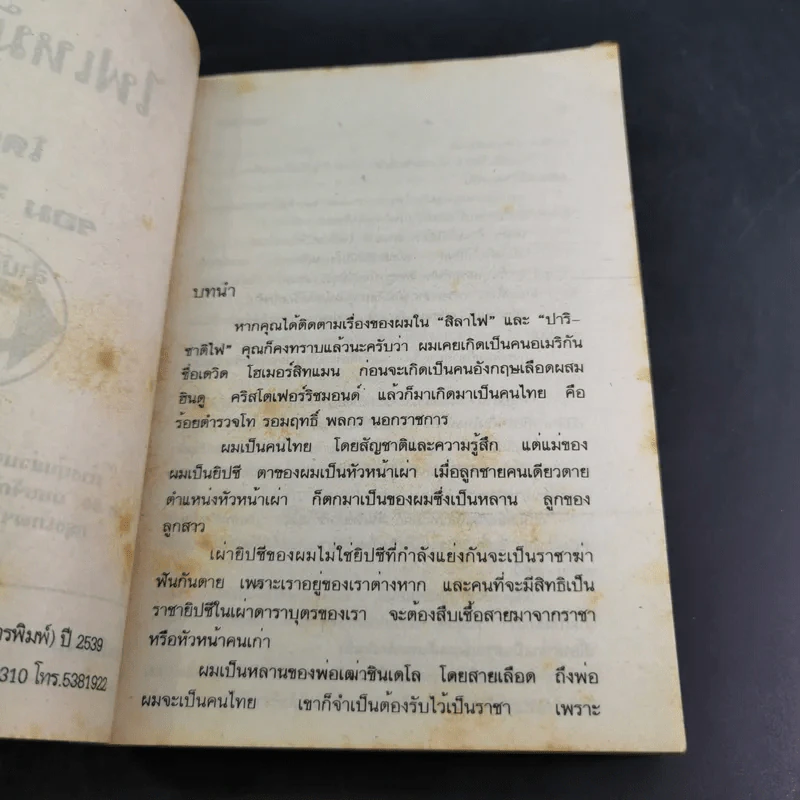 ไฟเหมั
โดย
รพิมพ์) ปี 2539
310 โทร.5381922
บทนำ
หากคุณได้ติดตามเรื่องของผมใน “สิลาไฟ” และ “ปาริ-
ชาติไฟ” คุณก็คงทราบแล้วนะครับว่า ผมเคยเกิดเป็นคนอเมริกัน
ชื่อเดวิด โฮเมอร์สิทแมน ก่อนจะเกิดเป็นคนอังกฤษเลือดผสม
ฮินดู คริสโตเฟอร์ริชมอนด์ แล้วก็มาเกิดมาเป็นคนไทย คือ
ร้อยตำรวจโท รอมฤทธิ์ พลกร นอกราชการ
ผมเป็นคนไทย โดยสัญชาติและความรู้สึก แต่แม่ของ
ผมเป็นยิปซี ตาของผมเป็นหัวหน้าเผ่า เมื่อลูกชายคนเดียวตาย
ตำแหน่งหัวหน้าเผ่า ก็ตกมาเป็นของผมซึ่งเป็นหลาน ลูกของ
ลูกสาว
เผ่ายิปซีของผมไม่ใช่ยิปซีที่กำลังแย่งกันจะเป็นราชาฆ่า
ฟันกันตาย เพราะเราอยู่ของเราต่างหาก และคนที่จะมีสิทธิเป็น
ราชายิปซีในเผ่าดาราบุตรของเรา จะต้องสืบเชื้อสายมาจากราชา
หรือหัวหน้าคนเก่า
ผมเป็นหลานของพ่อเฒ่าซินเดโล โดยสายเลือด ถึงพ่อ
ผมจะเป็นคนไทย เขาก็จำเป็นต้องรับไว้เป็นราชา เพราะ